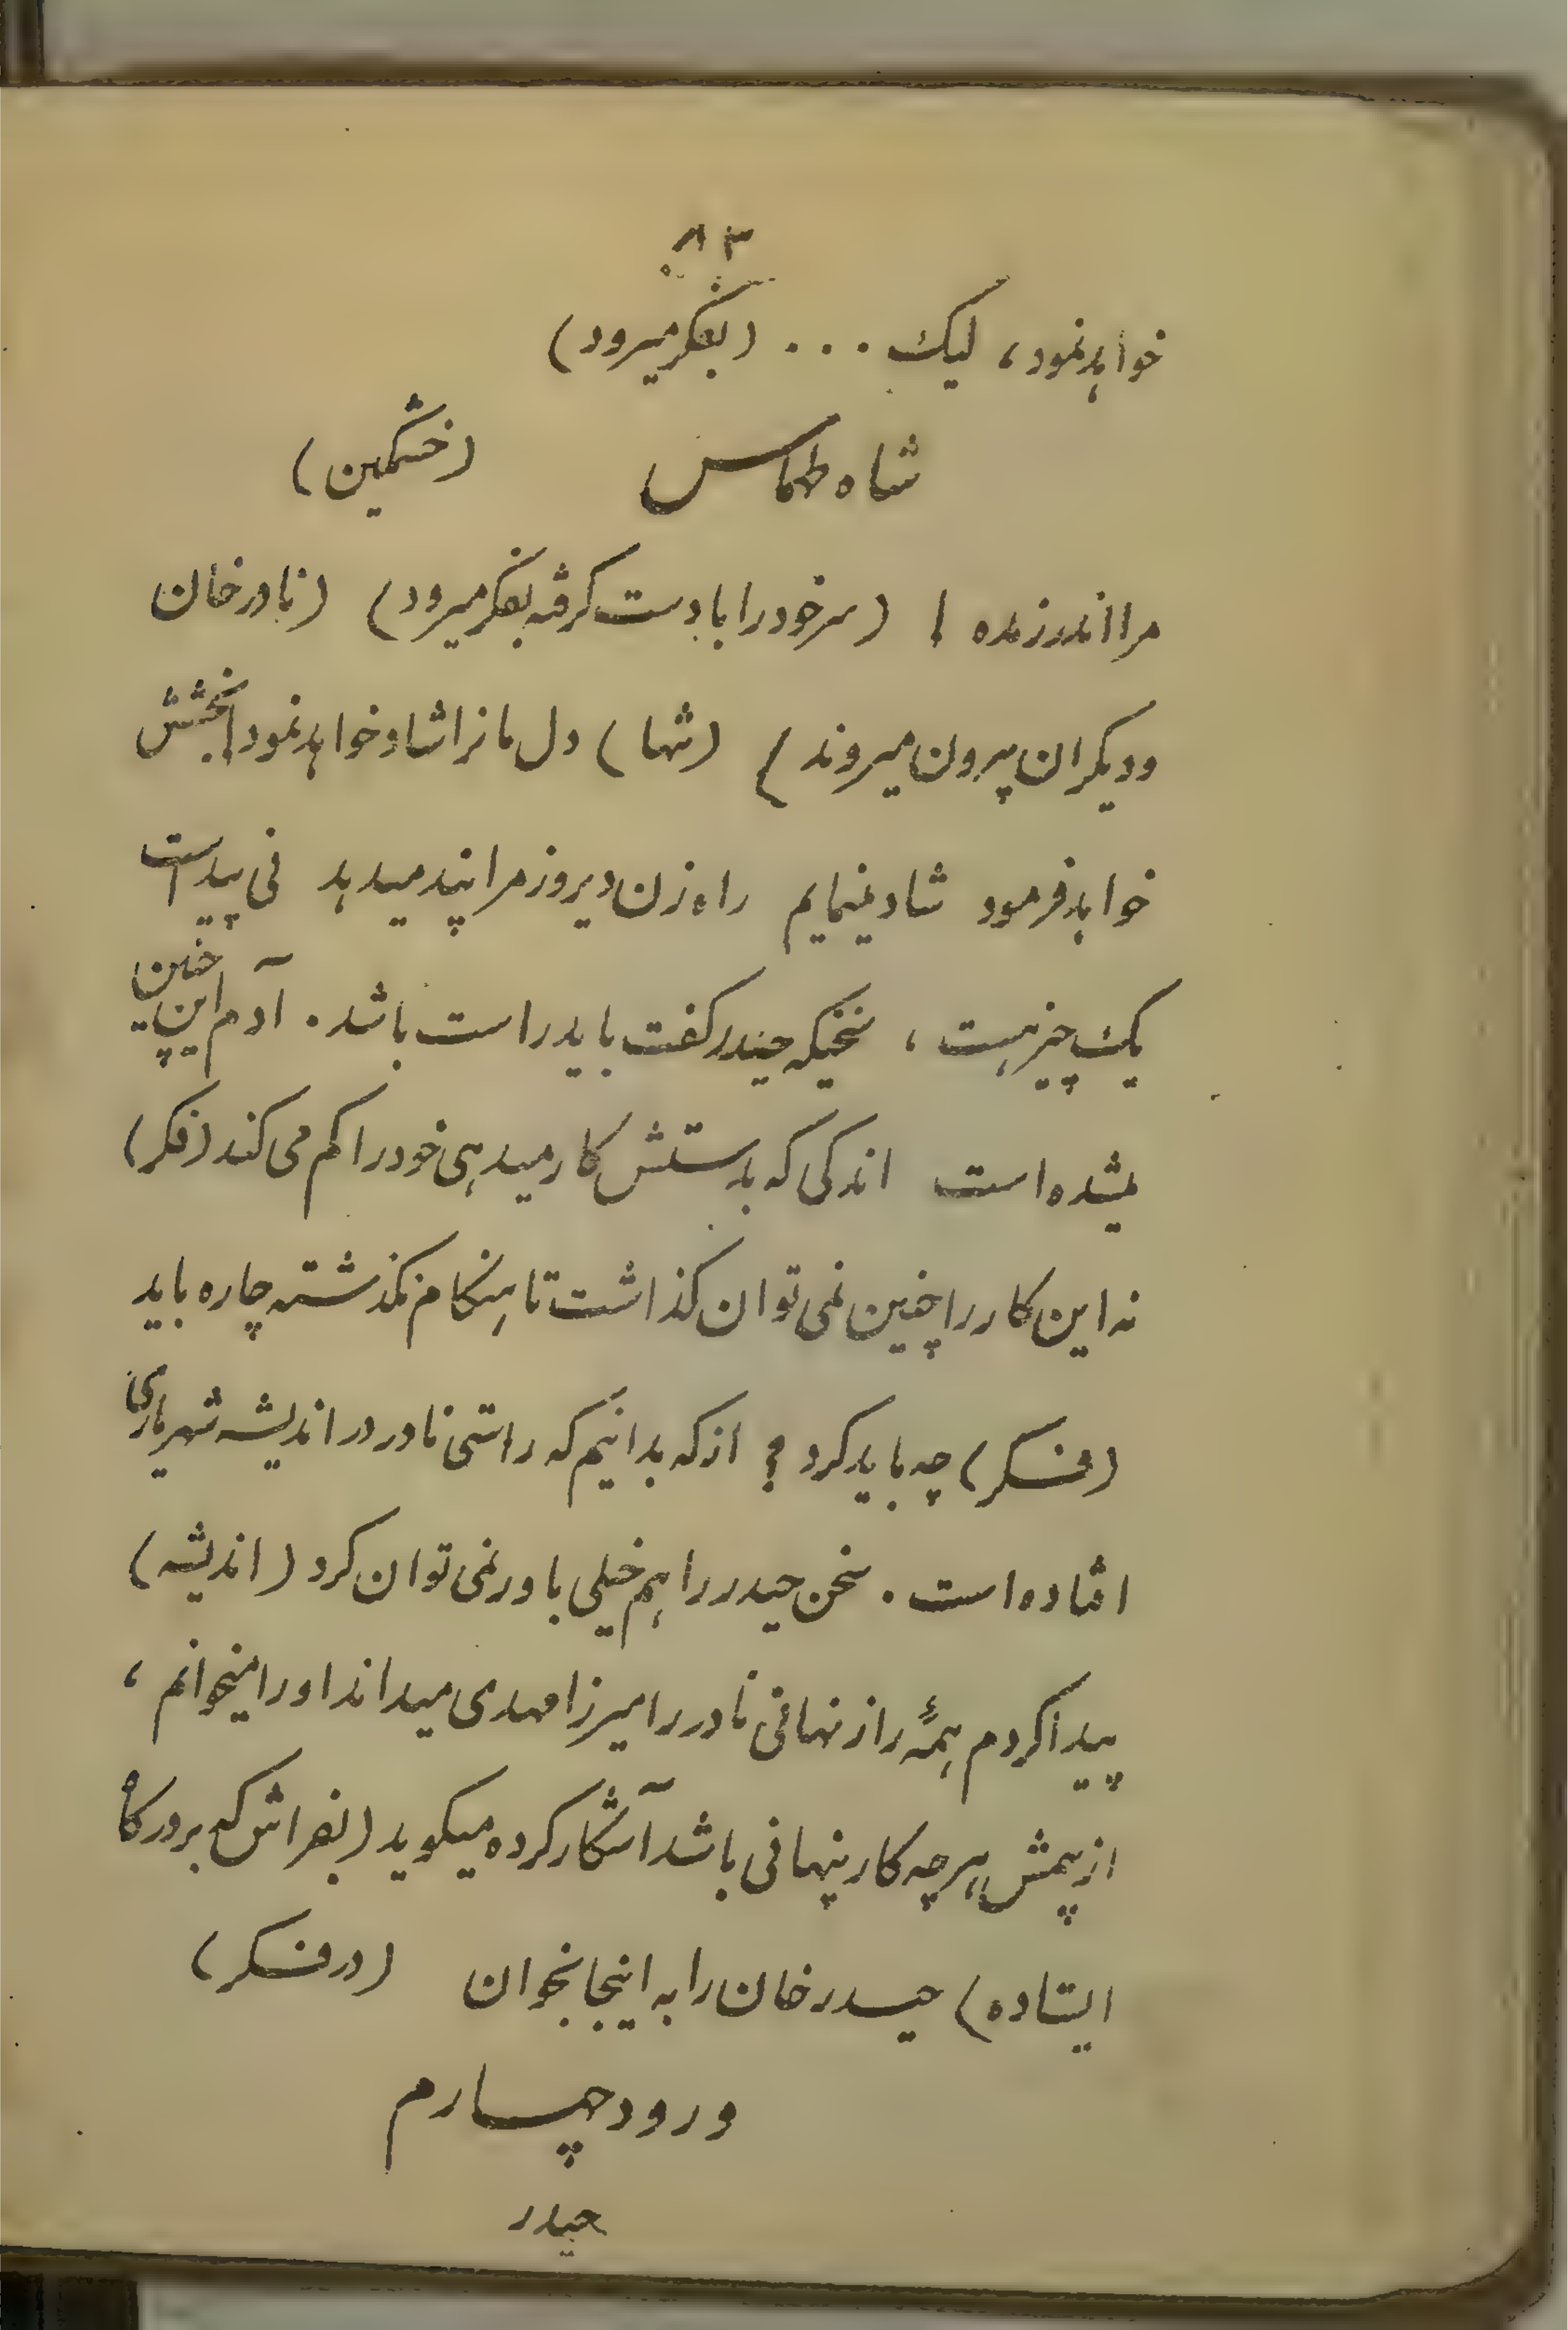 ۸۳
خواهد نمود، لیک ... (بفکر میرود)
شاه طهماس (خشمکین)
مرا اندرزنده! (سر خود را با دست کرفته بفکر میرود) (نادر خان
و دیکران بیرون میروند) (تنها) دل مانرا شاد خواهد نمود! بخشش
خواهد فرمود شاد مینمایم راه زن دیروز مرا پند میدهد نی پیداست
یک چیز هست، سخنیکه حیدر کفت باید راست باشد. آدم این چنین
میشده است اندکی که بدستش کار میدهی خود را کم می کند (فکر)
نه این کار را چنین نمی توان کذاشت تا هنکام نکذشته چاره باید
(فکر) چه باید کرد؟ از که بدانیم که راستی نادر در اندیشه شهریاری
افتاده است. سخن حیدر را هم خیلی باور نمی توان کرد (اندیشه)
پیدا کردم همهٔ راز نهانی نادر را میرزا مهدی میداند او را میخوانم،
از بیمش هر چه کار پنهانی باشد آشکار کرده میکوید (بفراش که بر درکاه
ایستاده) حیدر خان را به اینجا بخوان (در فکر)
ورود چهارم
حیدر